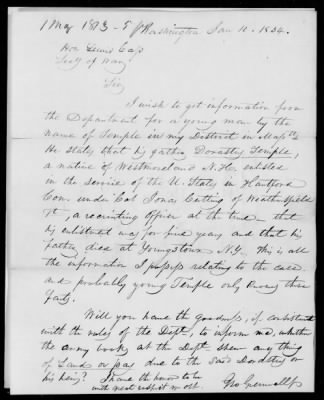 1 May 1813 - 5 y Washington Jan 10. 1834.
Hon Lewis Cass
Secty of War,
Sir,
I wish to get information from
the Department for a young man by the
name of Temple in my District in Masstts
He states that his father Dorastus Temple,
a native of Westmoreland N.H. enlisted
in the Service of the U. States in Hartford
Con. under Col Jonas Cutting of Weathersfield
Vt, a recruiting officer at the time that
his enlistment was for five years and that his
father died at Youngstown N.Y. This is all
the information I possess relating to the case
and probably young Temple only knows these
facts.
Will you have the goodness, if consistent
with the rules of the Dept, to inform me, whether
the army books at the Dept shew any thing
of Lands or pay due to the said Dorastus or
his heirs? I have the honor to be
with great respect yr obt.
Geo Grennell Jr